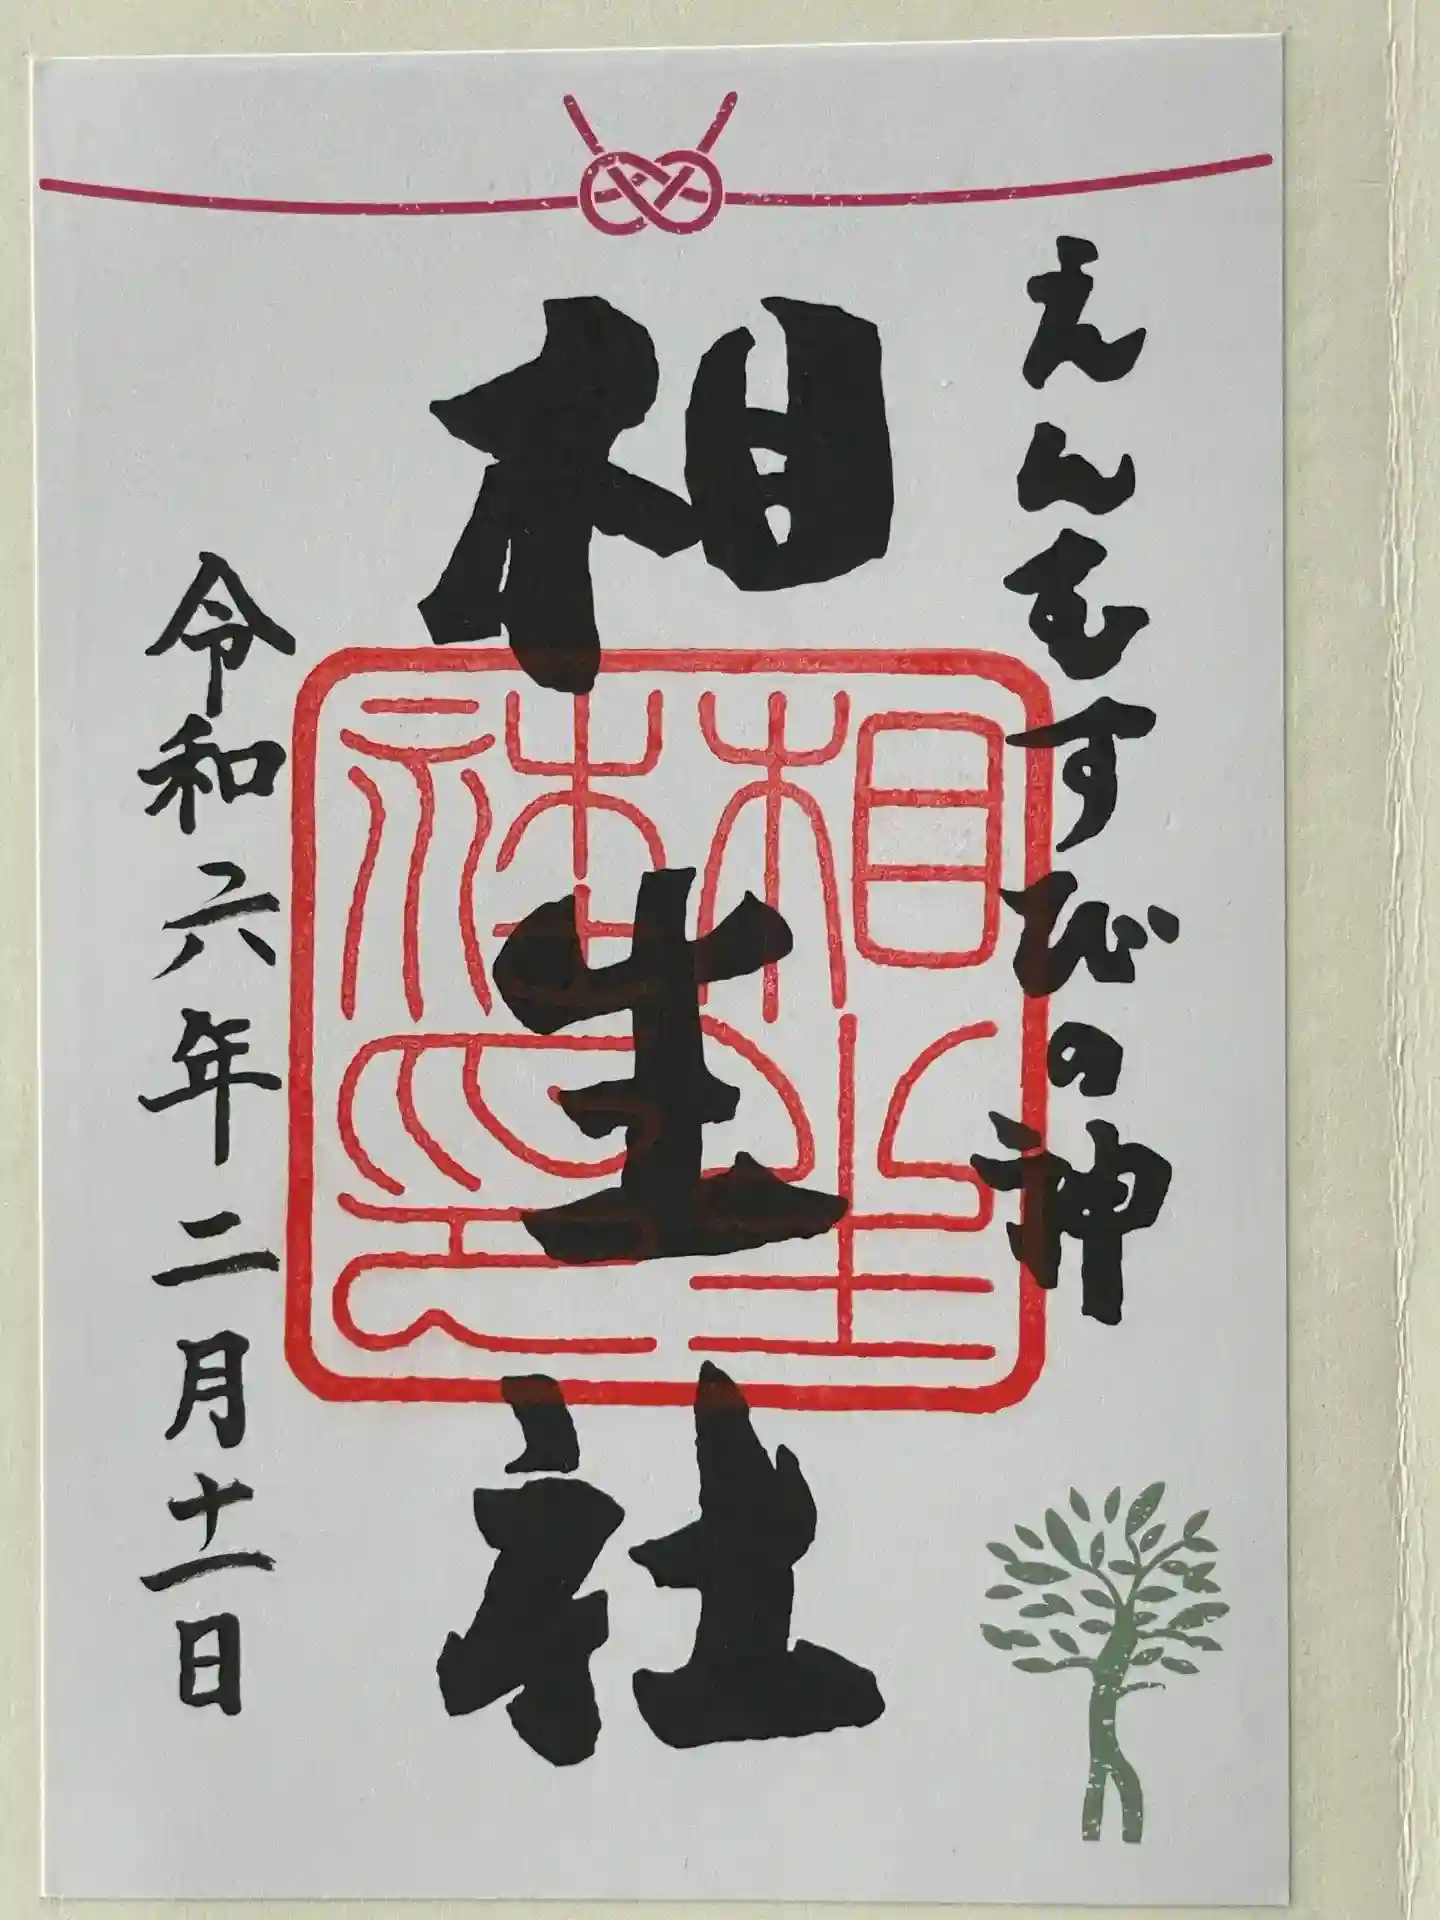 えんむすびの神
相生社
相生社之印
令和六年二月十一日